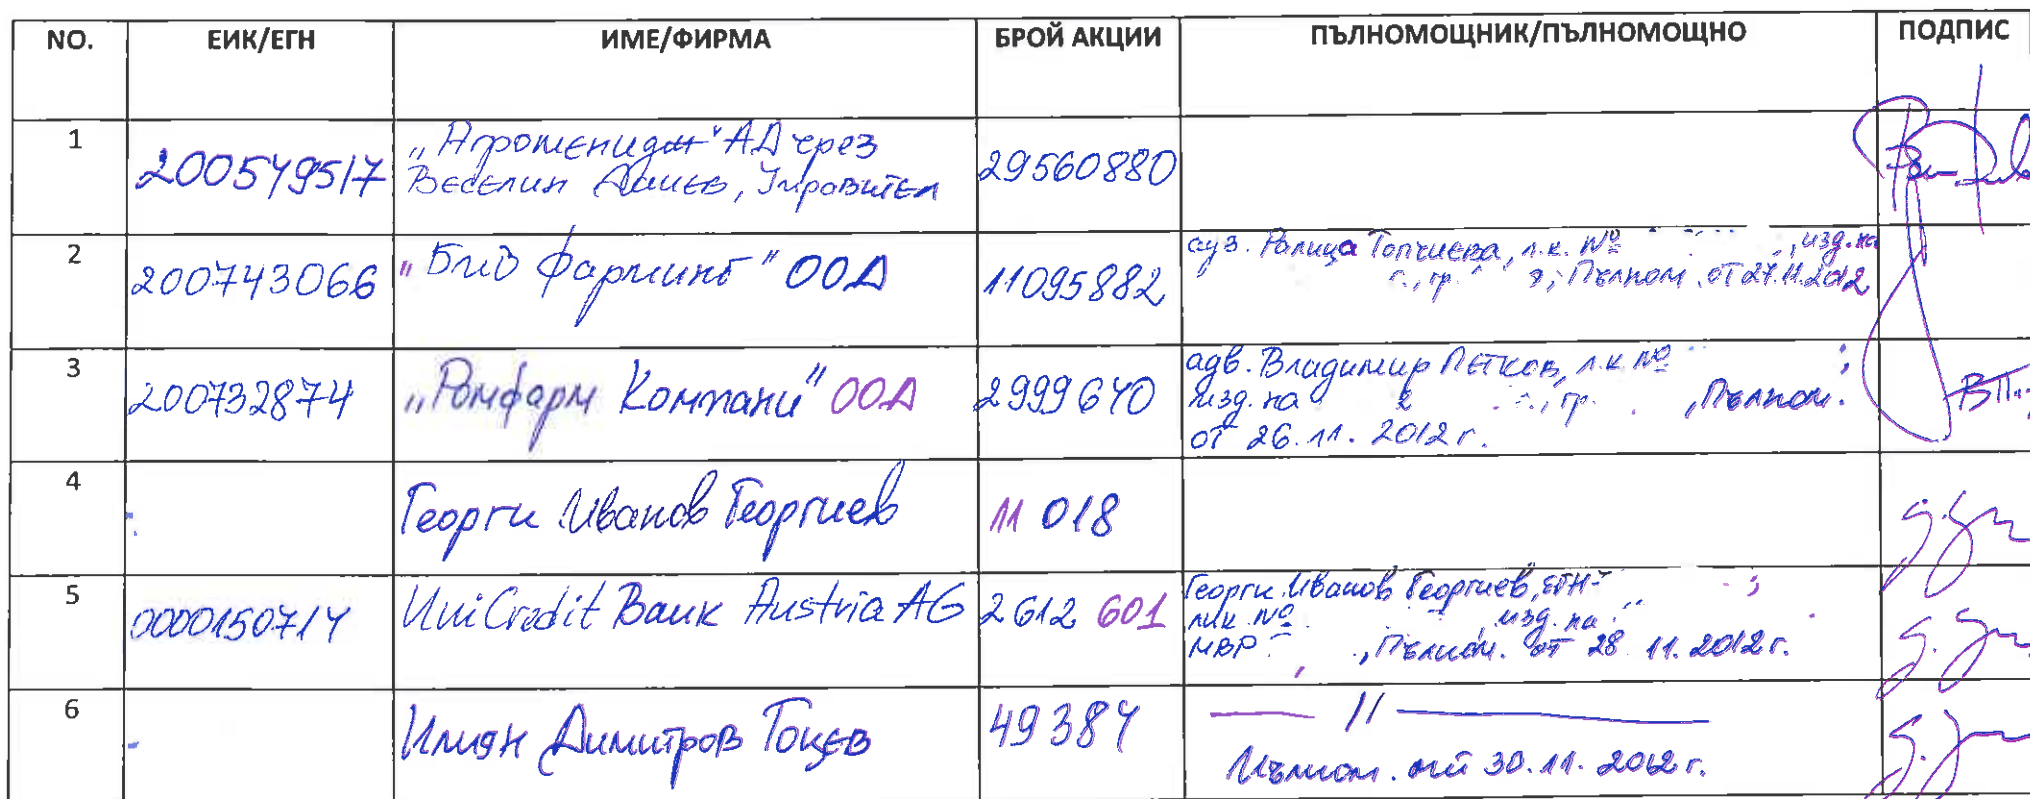 NO. ЕИК/ЕГН ИМЕ/ФИРМА БРОЙ АКЦИИ ПЪЛНОМОЩНИК/ПЪЛНОМОЩНО ПОДПИС
1 200579517 „Агроменидж“ АД чрез 29560880
Веселин Данев, Управител
2 200743066 "Бид Фарминг" ООД 11095882 ауз. Ралица Топчиева, л.к. № , изд. на
г., гр. Пълном. от 27.11.2012
3 200732874 „Ромфарм Компани" ООД 2999640 адв. Владимир Петков, л.к. №
изд. на г., гр. , Пълном.
от 26.11.2012 г.
4 Георги Иванов Георгиев 11 018
5 0000150714 UniCredit Bank Austria AG 2612 601 Георги Иванов Георгиев, ЕГН
л.к. № , изд. на
МВР , Пълном. от 28.11.2012 г.
6 Илиян Димитров Гоцев 49384 — // —
Пълном. от 30.11.2012 г.